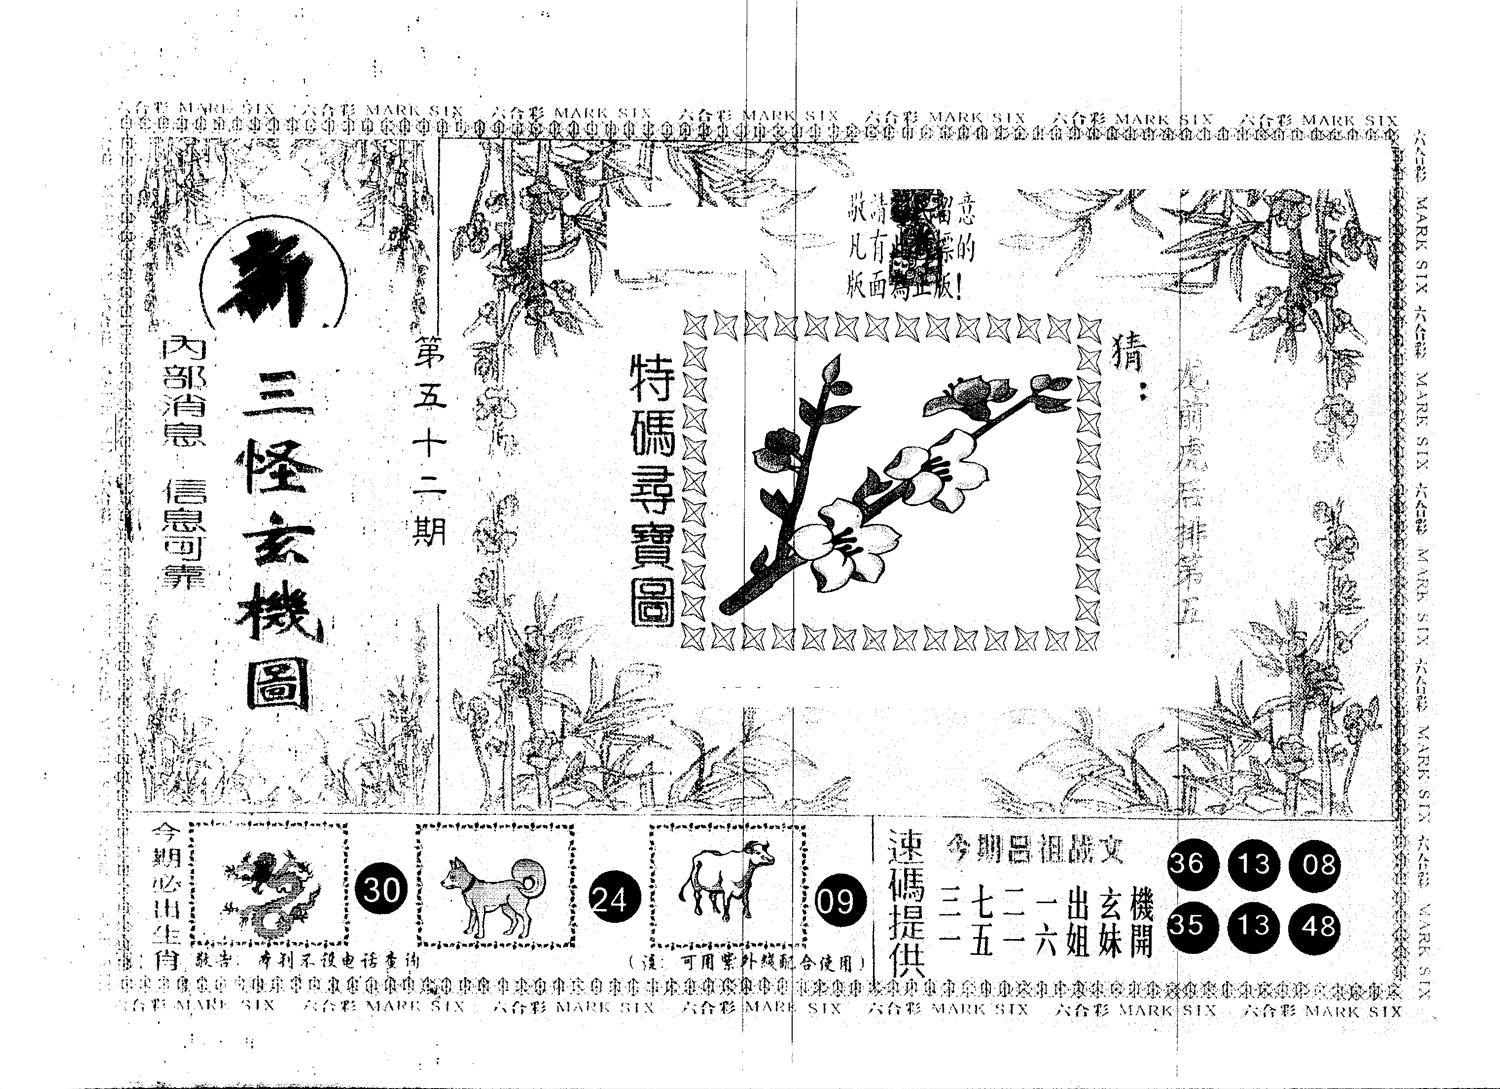 六合彩 MARK SIX 六合彩 MARK SIX 六合彩 MARK SIX 六合彩 MARK SIX 六合彩 MARK SIX 六合彩 MARK SIX 六合彩 MARK SIX
新
三怪玄機圖
內部消息 信息可靠
第五十二期
敬請 留意
凡有 標的
版面為正版!
特碼尋寶圖
猜:
龙前虎后排第五
今期必出生肖
30
24
09
敬告: 本刊不设电话查询
(注: 可用紫外线配合使用)
速碼提供
今期呂祖战文
三七二一出玄機
一五一六姐妹開
36 13 08
35 13 48
六合彩 MARK SIX 六合彩 MARK SIX 六合彩 MARK SIX 六合彩 MARK SIX 六合彩 MARK SIX
六合彩 MARK SIX 六合彩 MARK SIX 六合彩 MARK SIX 六合彩 MARK SIX 六合彩 MARK SIX 六合彩 MARK SIX 六合彩 MARK SIX